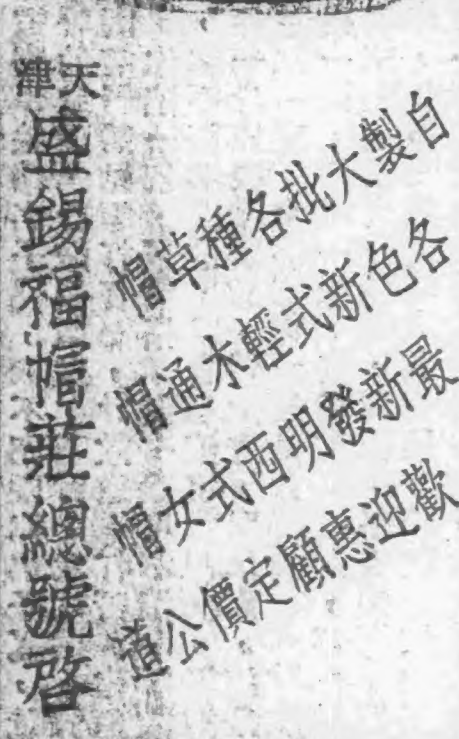 自製大批各種草帽
各色新式輕木通帽
最新發明西式女帽
歡迎惠顧定價公道
天津
盛錫福帽莊總號啓